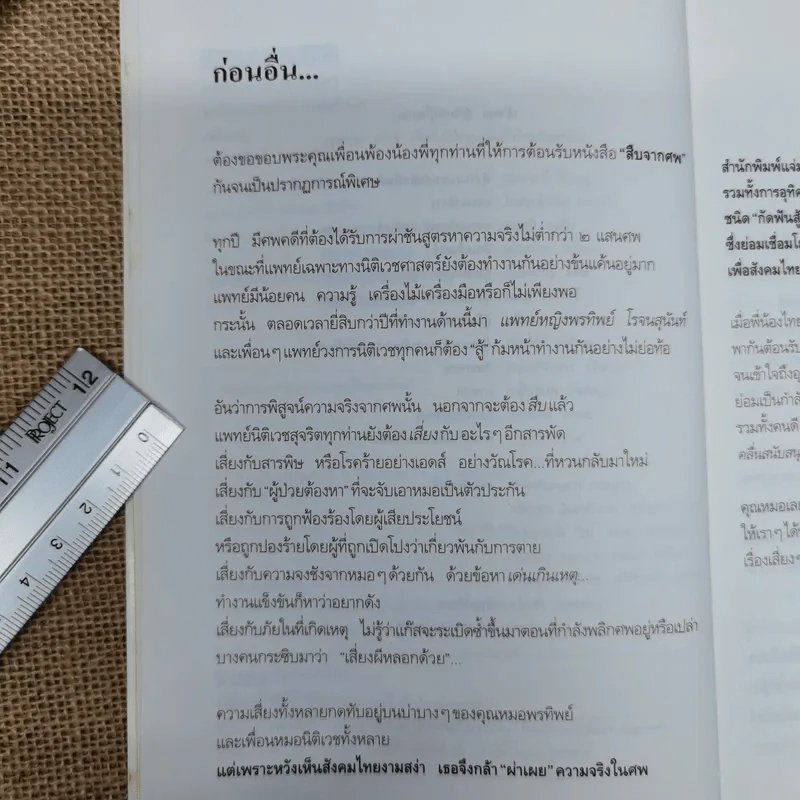 ก่อนอื่น...
ต้องขอขอบพระคุณเพื่อนพ้องน้องพี่ทุกท่านที่ให้การต้อนรับหนังสือ "สืบจากศพ"
กันจนเป็นปรากฏการณ์พิเศษ
ทุกปี มีศพคดีที่ต้องได้รับการผ่าชันสูตรหาความจริงไม่ต่ำกว่า ๒ แสนศพ
ในขณะที่แพทย์เฉพาะทางนิติเวชศาสตร์ยังต้องทำงานกันอย่างข้นแค้นอยู่มาก
แพทย์มีน้อยคน ความรู้ เครื่องไม้เครื่องมือหรือก็ไม่เพียงพอ
กระนั้น ตลอดเวลายี่สิบกว่าปีที่ทำงานด้านนี้มา แพทย์หญิงพรทิพย์ โรจนสุนันท์
และเพื่อนๆ แพทย์วงการนิติเวชทุกคนก็ต้อง "สู้" ก้มหน้าทำงานกันอย่างไม่ย่อท้อ
อันว่าการพิสูจน์ความจริงจากศพนั้น นอกจากจะต้อง สืบ แล้ว
แพทย์นิติเวชสุจริตทุกท่านยังต้อง เสี่ยง กับ อะไรๆ อีกสารพัด
เสี่ยงกับสารพิษ หรือโรคร้ายอย่างเอดส์ อย่างวัณโรค...ที่หวนกลับมาใหม่
เสี่ยงกับ "ผู้ป่วยต้องหา" ที่จะจับเอาหมอเป็นตัวประกัน
เสี่ยงกับการถูกฟ้องร้องโดยผู้เสียประโยชน์
หรือถูกปองร้ายโดยผู้ที่ถูกเปิดโปงว่าเกี่ยวพันกับการตาย
เสี่ยงกับความจงชังจากหมอๆ ด้วยกัน ด้วยข้อหา เด่นเกินเหตุ...
ทำงานแข็งขันก็หาว่าอยากดัง
เสี่ยงกับภัยในที่เกิดเหตุ ไม่รู้ว่าแก๊สจะระเบิดซ้ำขึ้นมาตอนที่กำลังพลิกศพอยู่หรือเปล่า
บางคนกระซิบมาว่า "เสี่ยงผีหลอกด้วย"...
ความเสี่ยงทั้งหลายกดทับอยู่บนบ่าบางๆ ของคุณหมอพรทิพย์
และเพื่อนหมอนิติเวชทั้งหลาย
แต่เพราะหวังเห็นสังคมไทยงามสง่า เธอจึงกล้า "ผ่าเผย" ความจริงในศพ
สำนักพิมพ์แจ่ม
รวมทั้งการอุทิศ
ชนิด "กัดฟันสู้
ซึ่งย่อมเชื่อมโ
เพื่อสังคมไทย
เมื่อพี่น้องไทย
พากันต้อนรับ
จนเข้าใจถึงอุ
ย่อมเป็นกำลัง
รวมทั้งคนดี
คลื่นสนับสนุ
คุณหมอเลย
ให้เราๆ ได้
เรื่องเสี่ยงๆ
PROJECT
11 12
0 1 2 3 4